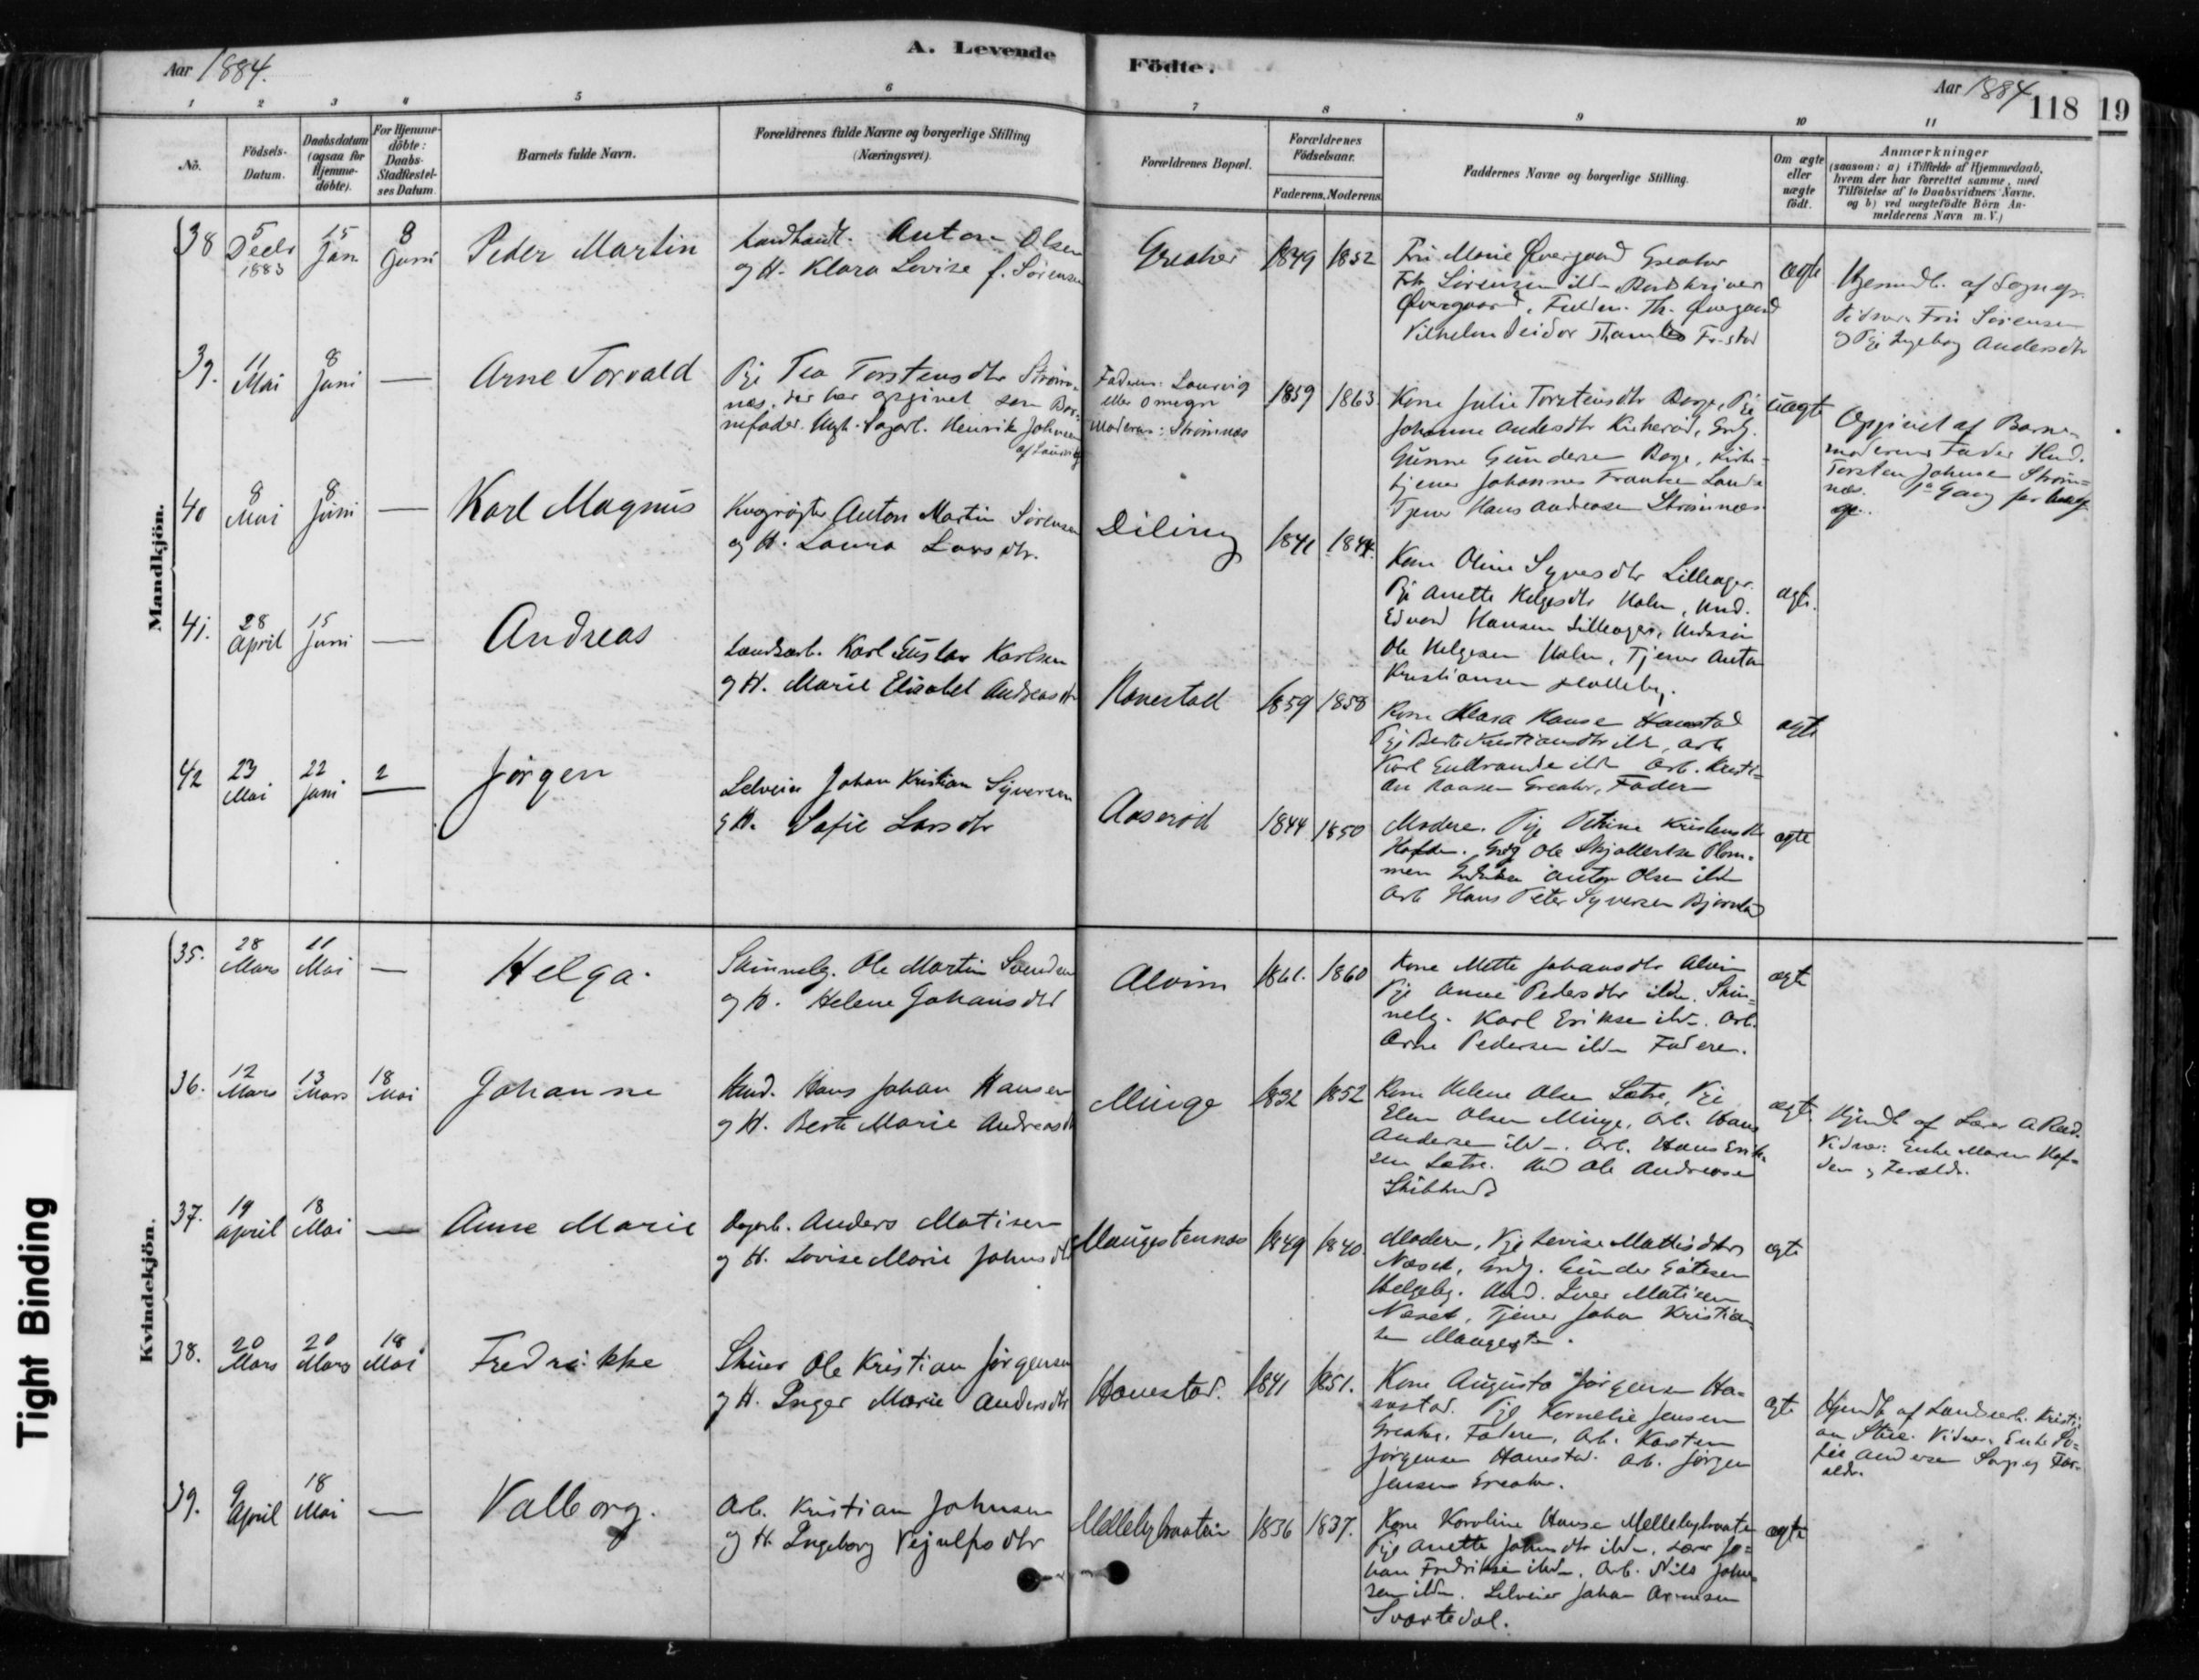 A. Levende Födte.
Aar 1884.
Aar 1884
118
19
1 2 3 4 5 6 7 8 9 10 11
No.
Födsels-Datum.
Daabsdatum (ogsaa for Hjemme-döbte).
For Hjemme-döbte: Daabs-Stadfæstel-ses Datum.
Barnets fulde Navn.
Forældrenes fulde Navne og borgerlige Stilling (Næringsvei).
Forældrenes Bopæl.
Forældrenes Födselsaar.
Faderens. Moderens.
Faddernes Navne og borgerlige Stilling.
Om ægte eller uægte födt.
Anmærkninger
(saasom: a) i Tilfælde af Hjemmedaab,
hvem der har forrettet samme, med
Tilföielse af to Daabsvidners Navne,
og b) ved uægtefödte Börn An-
melderens Navn m. V.)
Mandkjön.
38 5 Decbr 1883 15 Jan 8 Juni Peder Martin
Landhandl. Anton Olsen
og H. Klara Lovise f. Sörensen
Greaker 1849 1852
Fru Marie Övergaard Greaker
Övergaard
ægte
Vidner: Fru Sörensen
og Pige Ingeborg Andersdtr
39. 11 Mai 8 Juni — Arne Torvald
Pige Tea Torstensdtr Strömnæs, der har opgivet som Barnefader Ungk. Dagarb. Henrik Johnsen af Laurvig
Faderens: Laurvig
eller omegn
Moderens: Strömnæs
1859 1863.
Kone Julie Torstensdtr Borge, Pige
Johanne Andersdtr Kirkeröd, Grdbr.
Gunne Gundersen Borge, Kirketjener Johannes Franken Lande
Tjener Hans Andreasen Strömnæs
uægte
Opgivet af Barnemoderens Fader Husmd.
Torsten Johnsen Strömnæs. 1ste Gang for begge.
40 8 Mai 8 Juni — Karl Magnus
Kvægrögter Anton Martin Sörensen
og H. Laura Larsdtr.
Diling 1841 1844.
Kone Oline Syversdtr Lilleager
Pige Anette Helgesdtr Holm, Husmd.
Edvard Hansen Lilleager,
Ole Helgesen Holm, Tjener Anton
Kristiansen
ægte.
41. 28 April 15 Juni — Andreas
Landarb. Karl Gustav Karlsen
og H. Marie Elisabet Andreasdtr
Hanestad 1859 1858
Kone Klara Hansen Hanestad
Pige Berte Kristiansdtr ibdm, Arb.
Karl ibdm Arb. Kristian Hansen Greaker, Faderen
ægte
42 23 Mai 22 Juni 2 — Jörgen
Selveier Johan Kristian Syversen
og H. Sofie Larsdtr
Aaseröd 1844 1850
Moderen. Pige Petrine Kristensdtr
Hafden. Grdbr Ole
Anton Olsen ibdm
Arb. Hans Peter Syversen
ægte
Kvindekjön.
35. 28 Mars 11 Mai — Helga.
Skinnelg. Ole Martin
og H. Helene Johansdtr
Alvim 1861. 1860
Kone Mette Johansdtr Alvim
Pige Anne Pedersdtr ibdm. Skinnelg. Karl Eriksen ibdm. Arb.
Arne Pedersen ibdm Faderen.
ægte
36. 12 Mars 13 Mars 18 Mai Johanne
Husmd. Hans Johan Hansen
og H. Berte Marie Andreasdtr
Minge 1832 1852
Kone Helene Olsen Sætre, Pige
Elen Olsen Minge, Arb. Hans
Andersen ibdm. Arb. Hans Eriksen Sætre. Ole Andreasen
ægte.
Hjemdt. af Lærer A Rud.
Vidner: Enke Maren Hafden og Foreldr.
37. 19 April 18 Mai — Anne Marie
Dagarb. Anders Matisen
og H. Lovise Marie Johnsdtr
Maugestennæs 1849 1840.
Moderen, Pige Lovise Mattisdtr
Næset, Grdbr. Gunder
Helgeby. Iver Matisen
Næset, Tjener Johan Kristiansen Maugesten.
ægte
38. 20 Mars 20 Mars 18 Mai Fredrikke
Skluer Ole Kristian Jörgensen
og H. Inger Marie Andersdtr
Hanestad. 1841 1851.
Kone Augusta Jörgensen Hanestad. Pige Kornelie Jensen
Greaker. Faderen, Arb. Karsten
Jörgensen Hanestad. Arb. Jörgen
Jensen Greaker.
ægte
Hjemdt. af Landarb. Kristian Vidner: Enke Sofie Andersen og Foreldr.
39. 9 April 18 Mai — Valborg.
Arb. Kristian Johnsen
og H. Ingeborg Vejulfsdtr
Mellebybraaten 1836 1837.
Kone Karoline Hansen Mellebybraaten
Pige Anette Johnsdtr ibdm. Lærer Johan Fredriksen ibdm. Arb. Nils Johnsen ibdm. Selveier Johan Arnesen
Svartedal.
ægte
Tight Binding